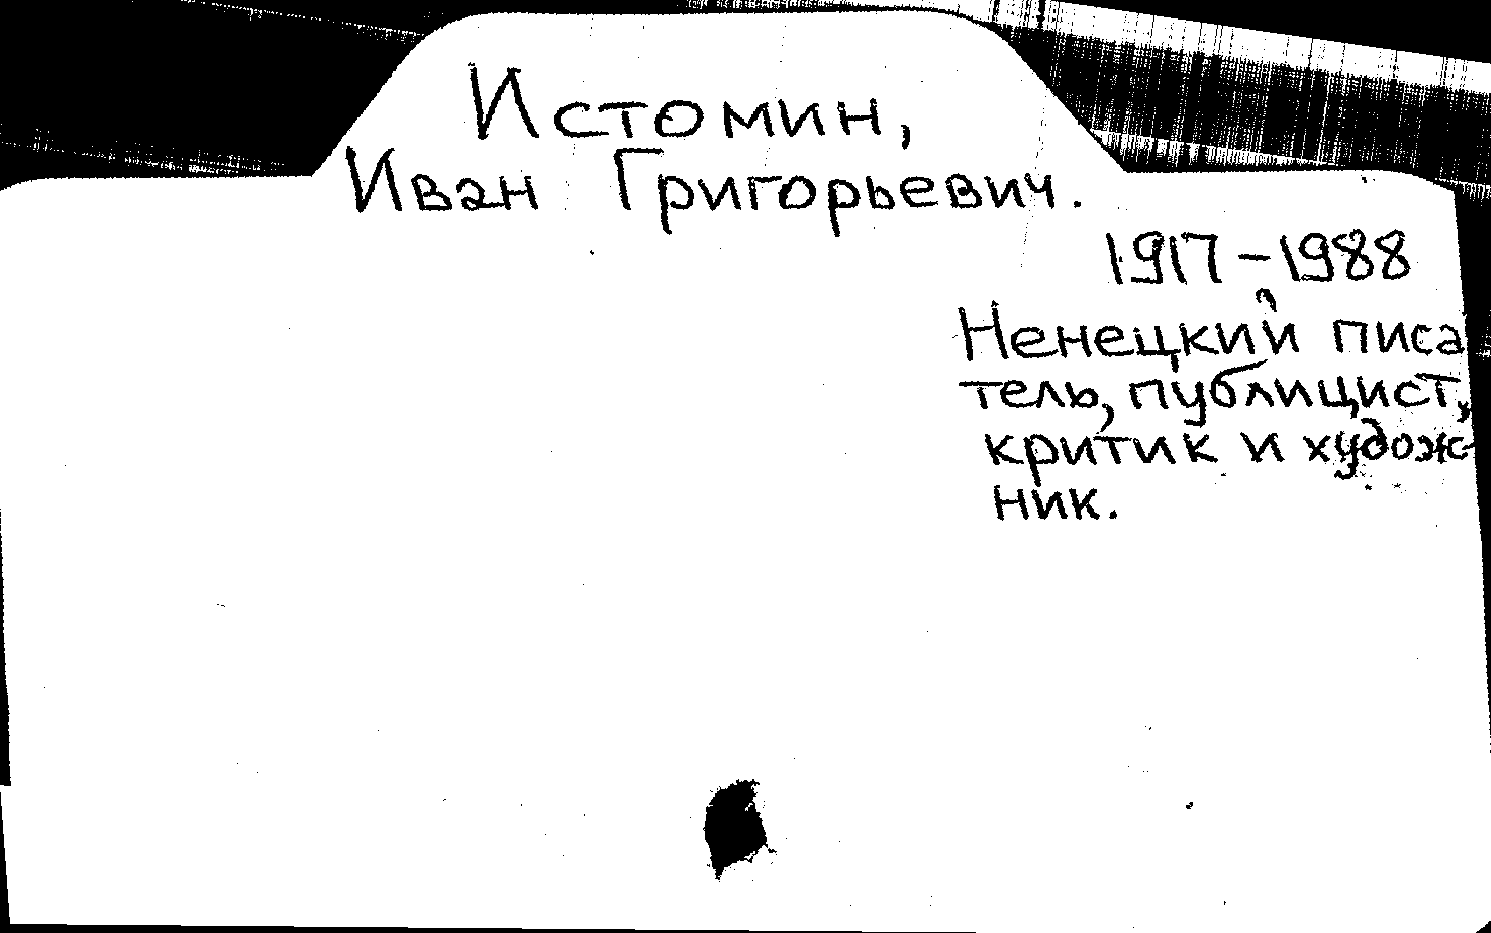 Истомин,
Иван Григорьевич.
1917-1988
Ненецкий писа
тель, публицист,
критик и худож-
ник.